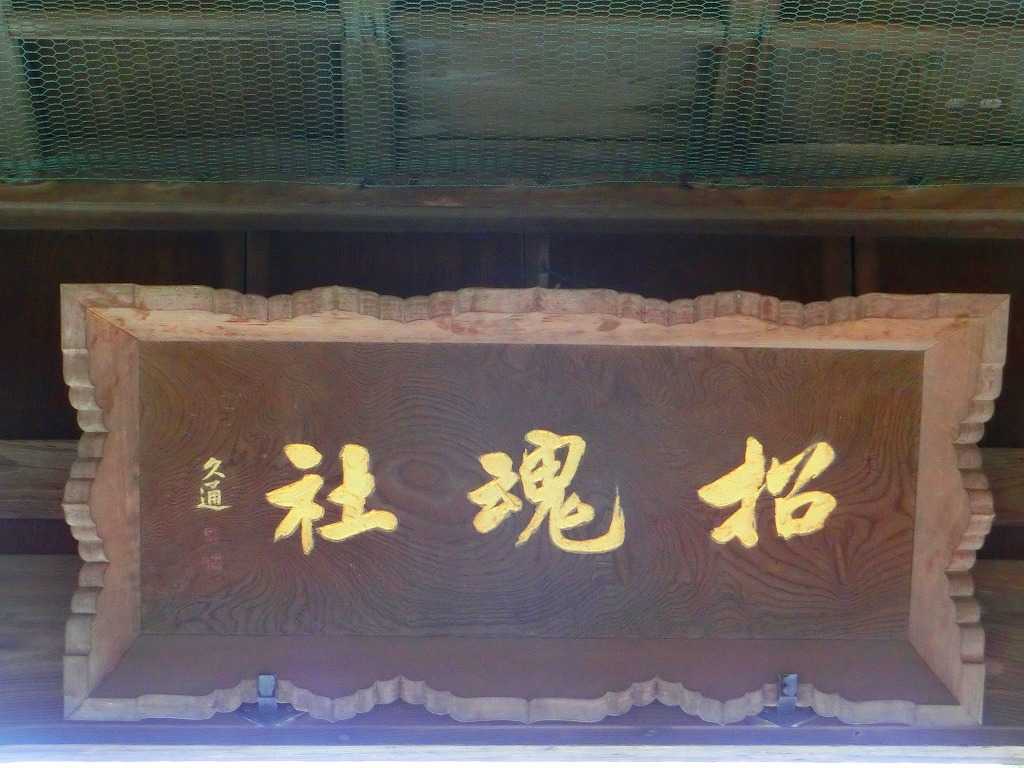 招魂社
久通